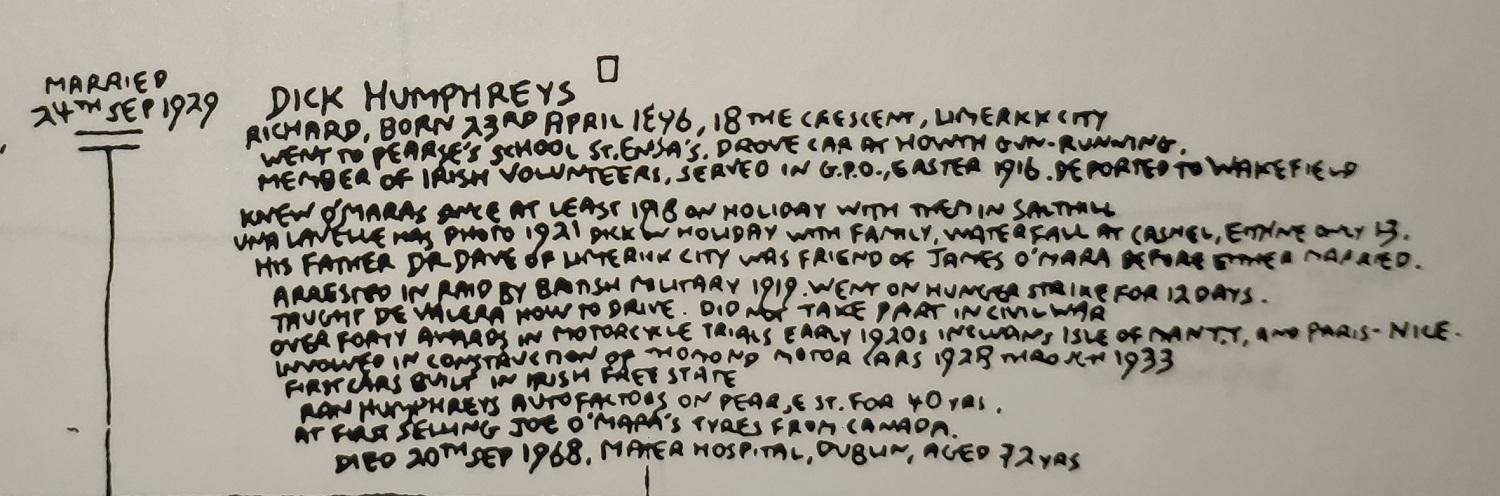 MARRIED
24TH SEP 1929
DICK HUMPHREYS
RICHARD, BORN 23RD APRIL 1896, 18 THE CRESCENT, LIMERICK CITY
WENT TO PEARSE'S SCHOOL ST. ENDA'S. DROVE CAR AT HOWTH GUN-RUNNING.
MEMBER OF IRISH VOLUNTEERS, SERVED IN G.P.O., EASTER 1916. DEPORTED TO WAKEFIELD
KNEW O'MARAS SINCE AT LEAST 1918 ON HOLIDAY WITH THEM IN SALTHILL
UNA LAVELLE HAS PHOTO 1921 DICK ON HOLIDAY WITH FAMILY, WATERFALL AT CASHEL, EITHNE ONLY 13.
HIS FATHER DR DAVE OF LIMERICK CITY WAS FRIEND OF JAMES O'MARA BEFORE EITHER MARRIED.
ARRESTED IN RAID BY BRITISH MILITARY 1919. WENT ON HUNGER STRIKE FOR 12 DAYS.
TAUGHT DE VALERA HOW TO DRIVE. DID NOT TAKE PART IN CIVIL WAR
OVER FORTY AWARDS IN MOTORCYCLE TRIALS EARLY 1920s INCLUDING ISLE OF MAN T.T, AND PARIS-NICE.
INVOLVED IN CONSTRUCTION OF THOMOND MOTOR CARS 1928 THROUGH 1933
FIRST CARS BUILT IN IRISH FREE STATE
RAN HUMPHREYS AUTOFACTORS ON PEARSE ST. FOR 40 YRS.
AT FIRST SELLING JOE O'MARA'S TYRES FROM CANADA.
DIED 20TH SEP 1968, MATER HOSPITAL, DUBLIN, AGED 72 YRS